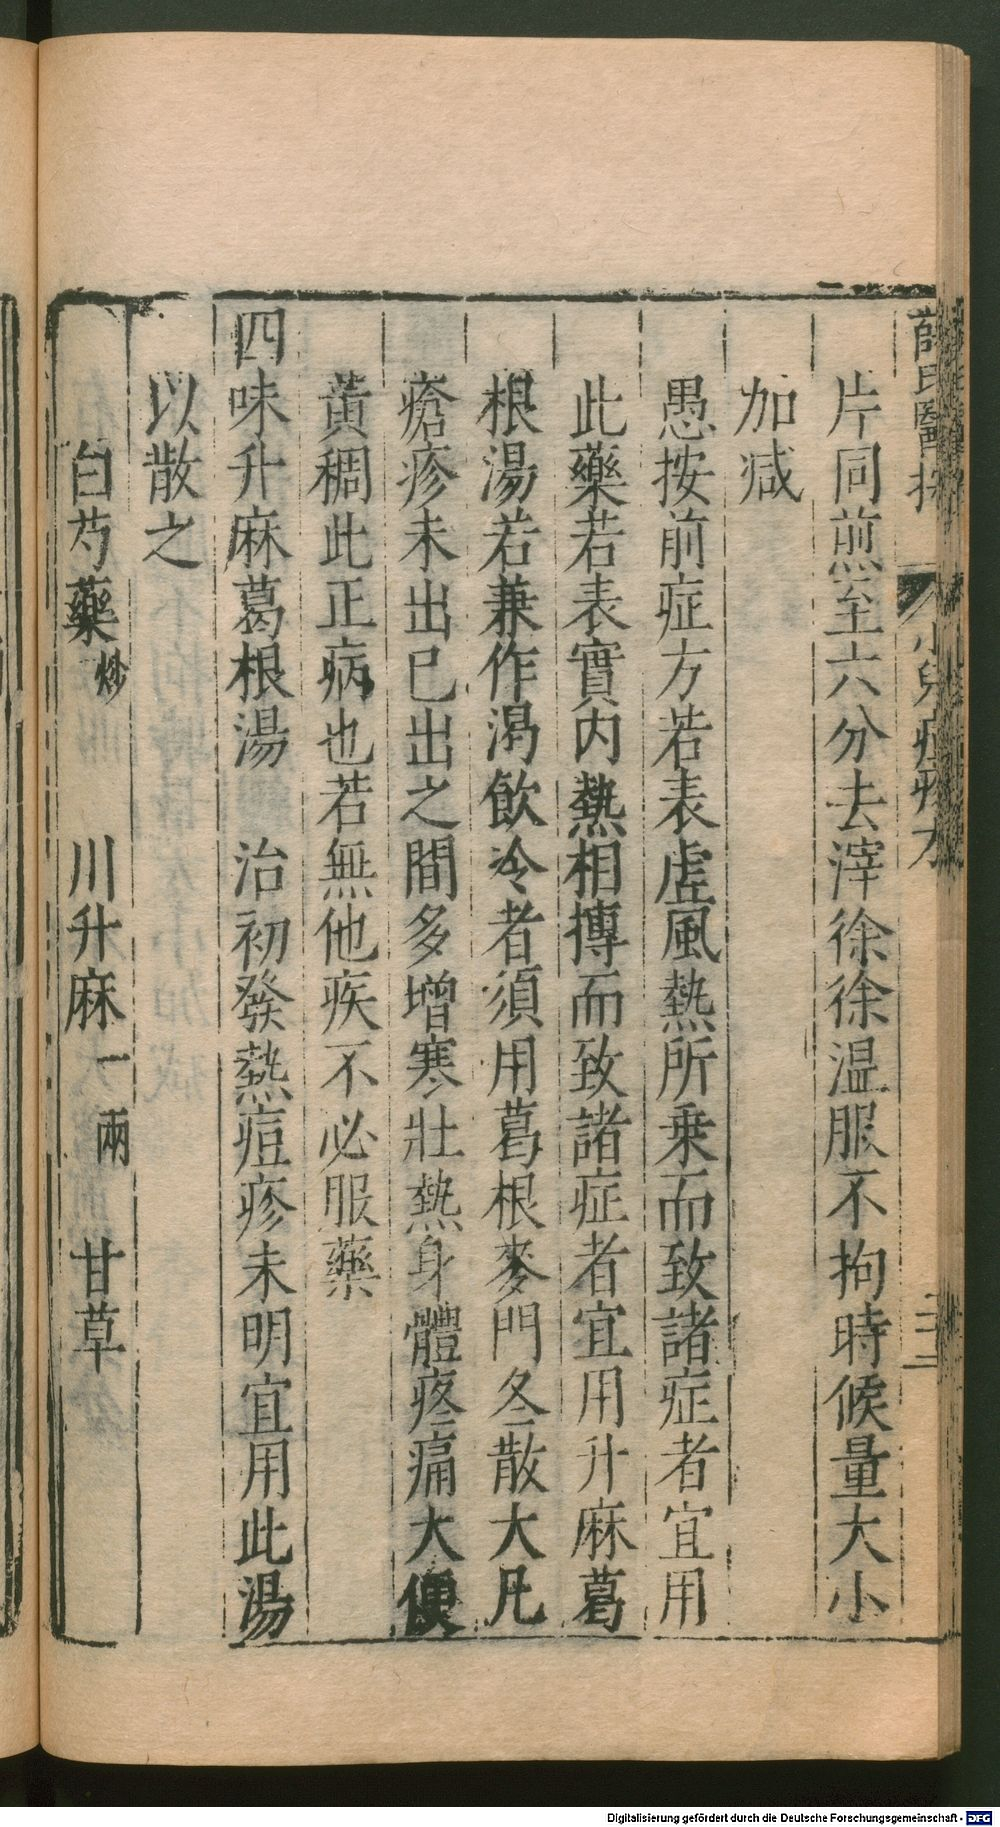 片同煎至六分去滓徐徐溫服不拘時候量大小
加减
愚按前症方若表虛風熱所乗而致諸症者宜用
此藥若表實内熱相摶而致諸症者宜用升麻葛
根湯若兼作渴飲冷者須用葛根麥門冬散大凡
瘡疹未出已出之間多增寒壯熱身體疼痛大便
黄稠此正病也若無他疾不必服藥
四味升麻葛根湯 治初發熱痘疹未明宜用此湯
以散之
白芍藥炒 川升麻一兩 甘草
Digitalisierung gefördert durch die Deutsche Forschungsgemeinschaft - DFG